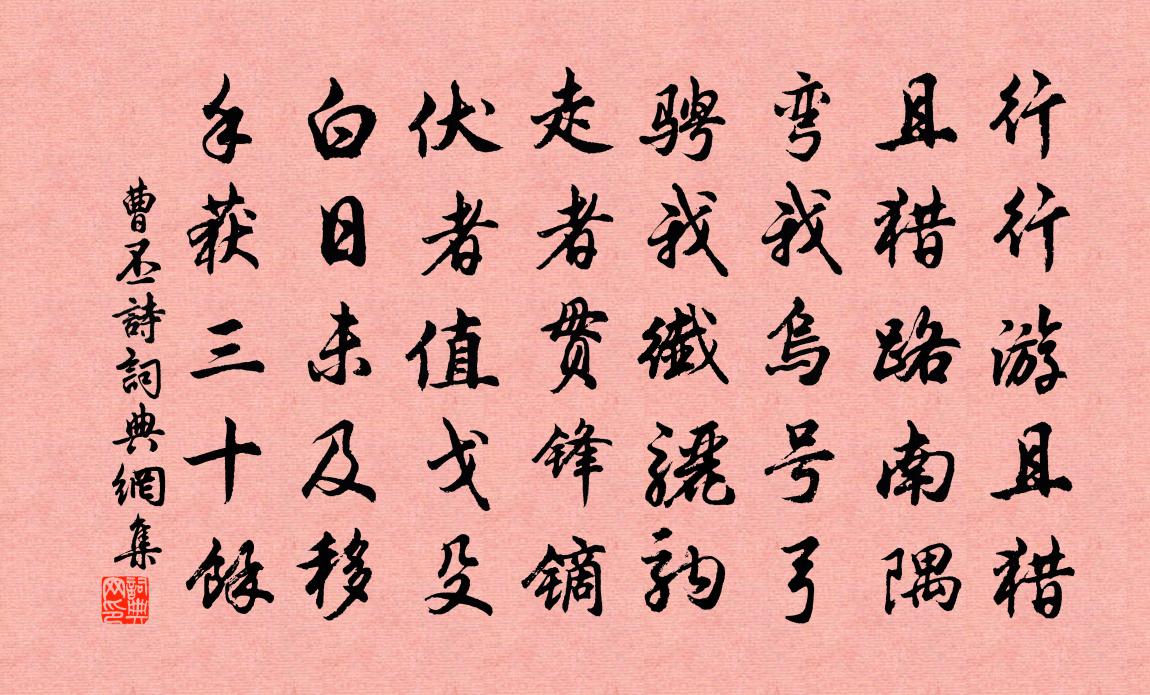 行行游且猎
且猎路南隅
弯我烏号弓
骋我纖驪駒
走者贯锋镝
伏者值戈殳
白日未及移
手获三十餘
曹丕詩詞典網集
詞典网印